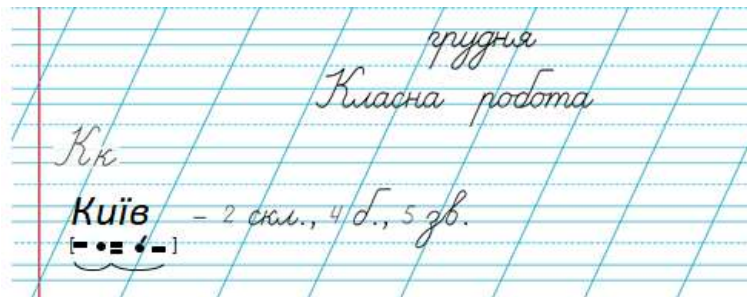 грудня
Класна робота
Кк
Київ – 2 скл., 4 б., 5 зв.
[– •= •́ –]